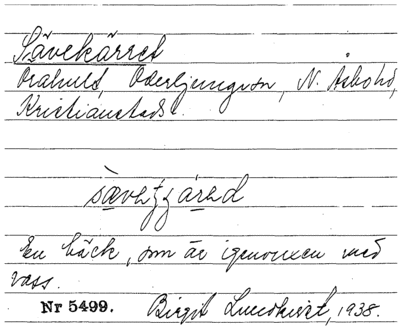 Sävekärret
Oderljungvsn, N. Åsbohd,
Kristianstads.
En bäck, som är igenvuxen med
vass.
Nr 5499. Birgit Lundkvist, 1938.